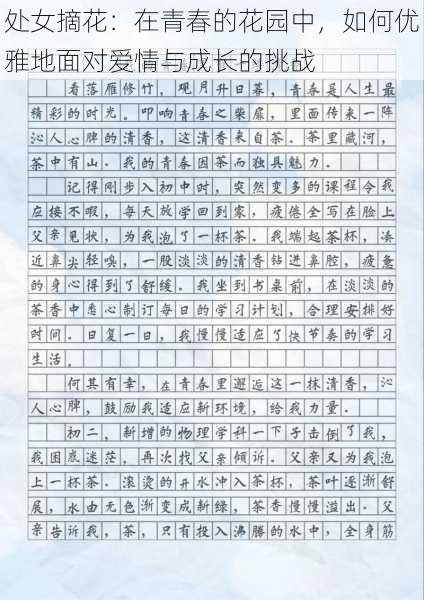 处女摘花：在青春的花园中，如何优
雅地面对爱情与成长的挑战
看落雁修竹，观月升日暮，青春是人生最
精彩的时光。叩响青春之柴扉，里面传来一阵
沁人心脾的清香，这清香来自茶。茶里藏河，
茶中有山。我的青春因茶而独具魅力。
记得刚步入初中时，突然变多的课程令我
应接不暇，每天放学回到家，疲倦全写在脸上
父亲见状，为我泡了一杯茶。我端起茶杯，凑
近鼻尖轻嗅，一股淡淡的清香钻进鼻腔，疲惫
的身心得到了舒缓。我坐到书桌前，在淡淡的
茶香中悉心制订每日的学习计划，合理安排好
时间。日复一日，我慢慢适应了快节奏的学习
生活。
何其有幸，在青春里邂逅这一抹清香，沁
人心脾，鼓励我适应新环境，给我力量。
初二，新增的物理学科一下子击倒了我，
我困惑迷茫，再次找父亲倾诉。父亲又为我泡
上一杯茶。滚烫的开水冲入茶杯，茶叶逐渐舒
展，水由无色渐变成新绿，茶香慢慢溢出。父
亲告诉我，茶，只有投入沸腾的水中，全身筋